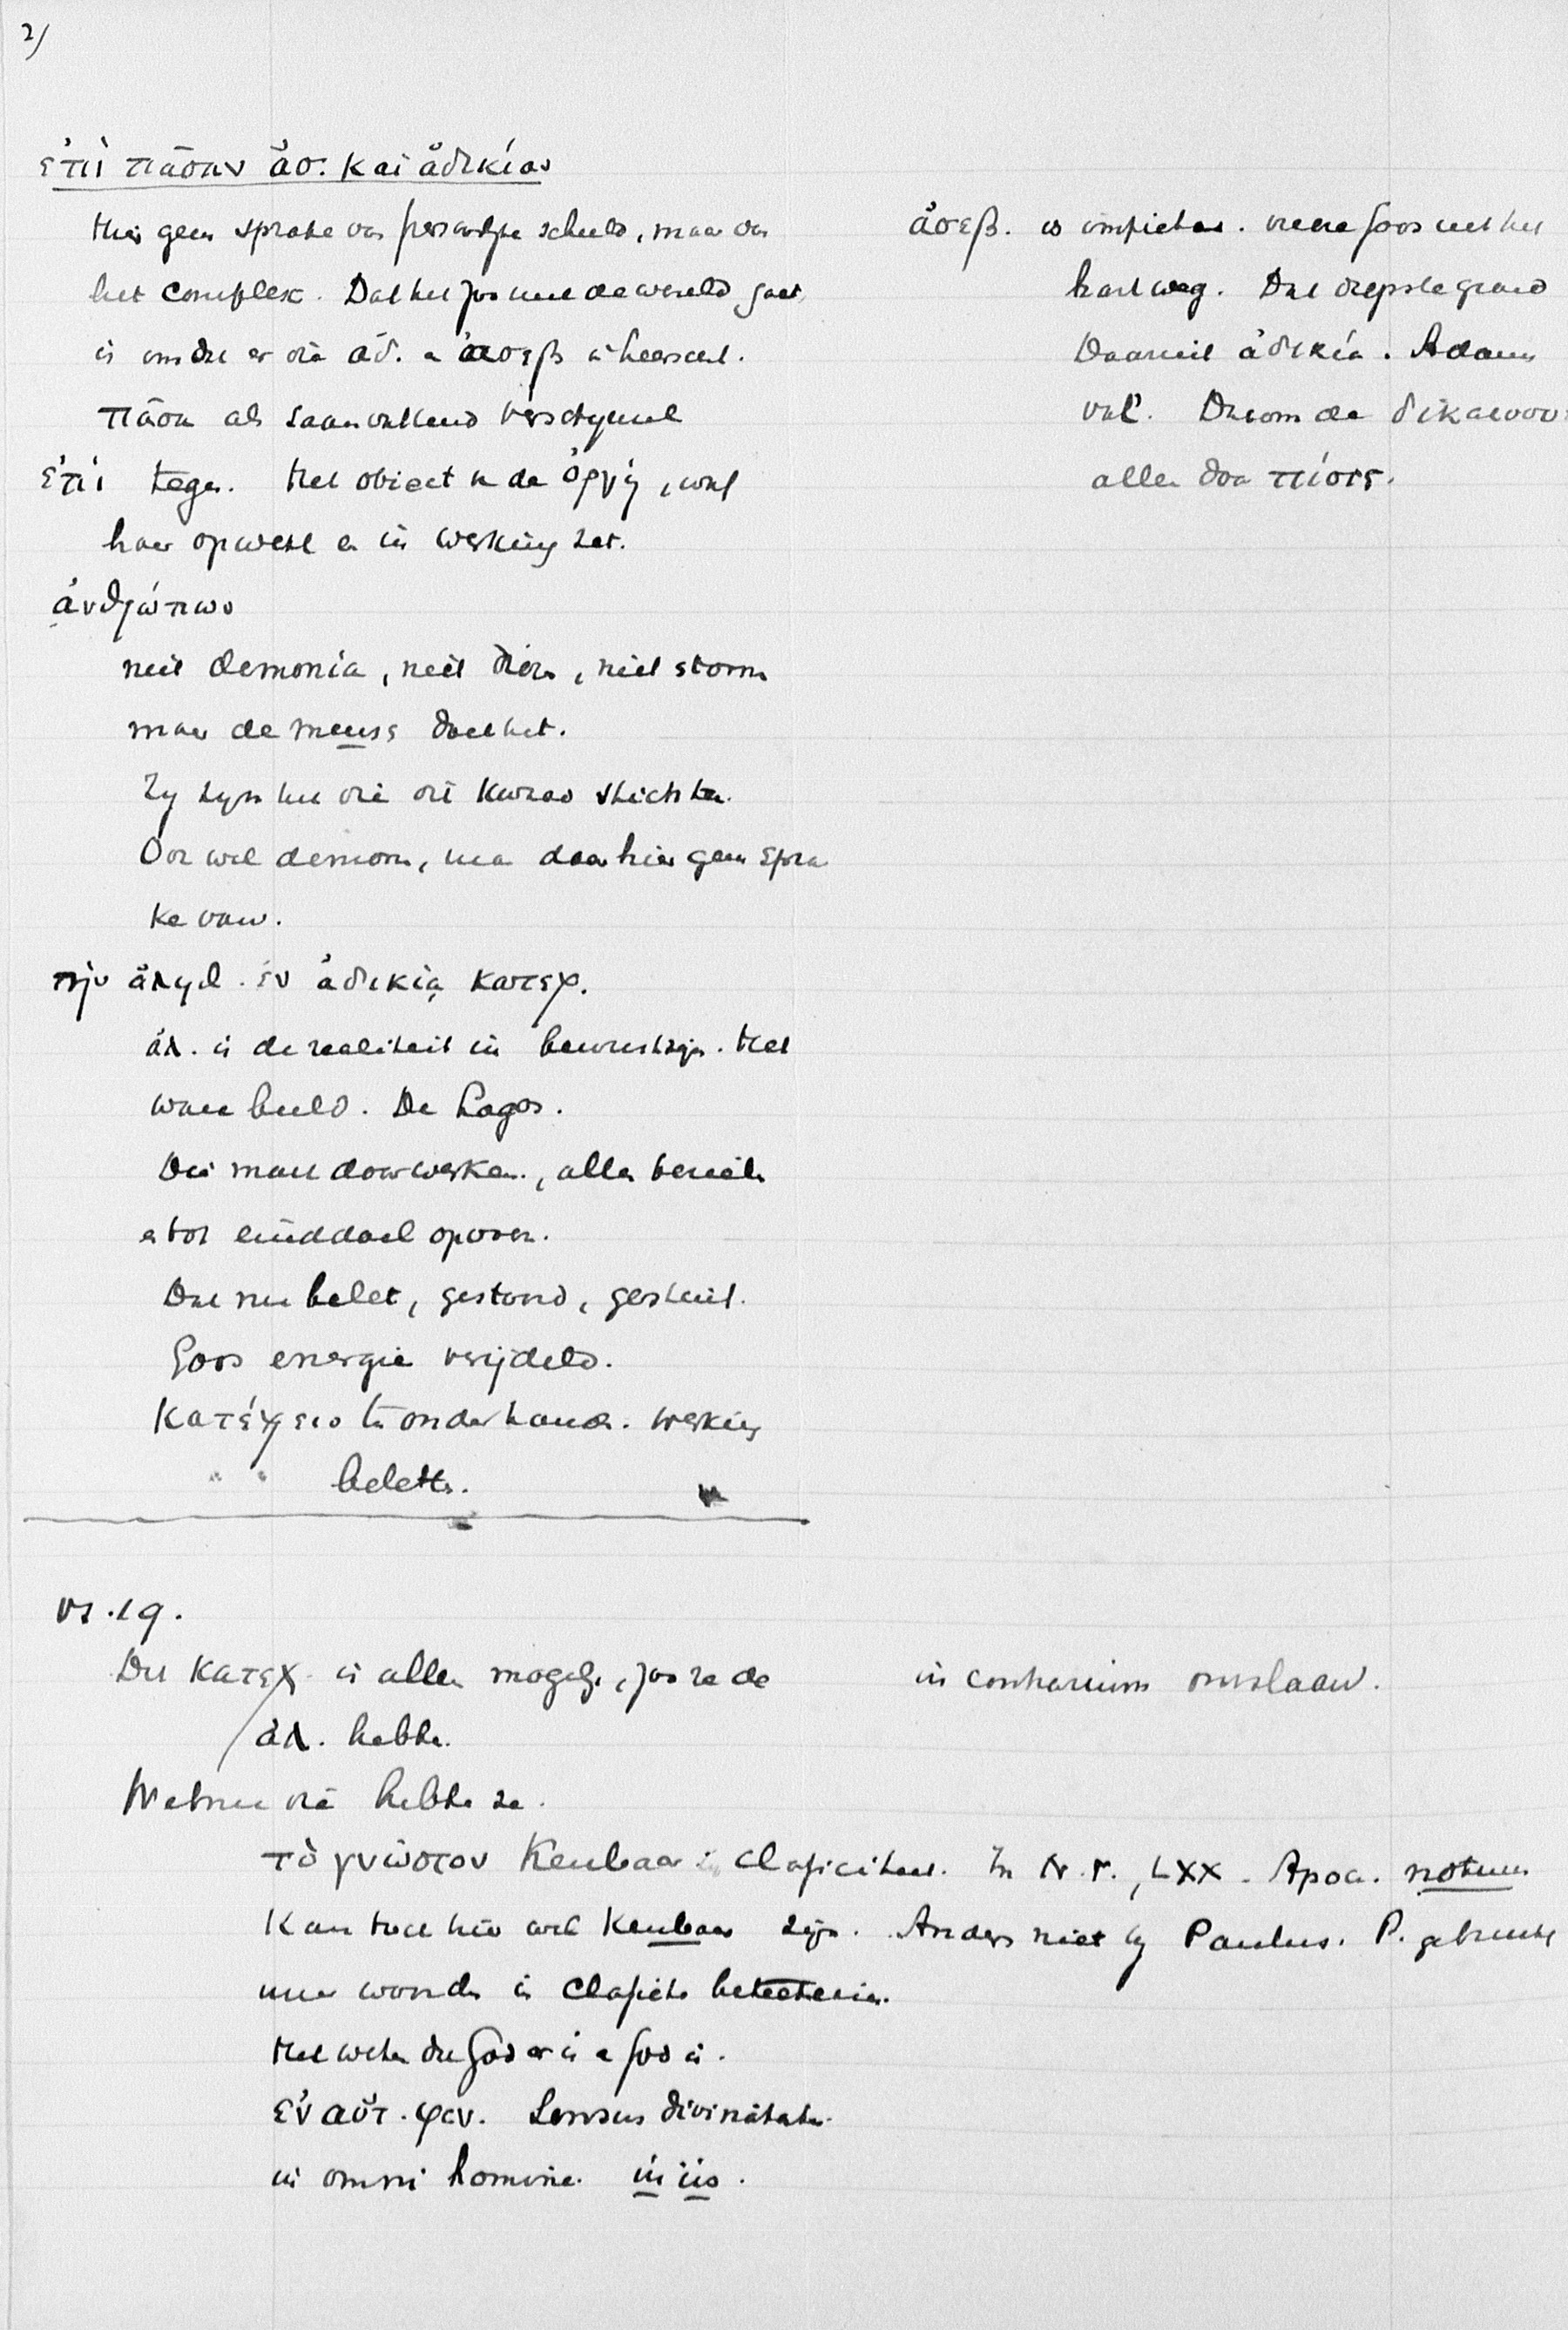 2)
ἐπὶ πᾶσαν ἀσ. καὶ ἀδικίαν
Hier geen sprake van persoonlijke schuld, maar van
het complex. Dat het zoo met de wereld gaat,
is omdat er die ἀδ. en ἀσεβ in heerscht.
πᾶσα als samenvattend verschijnsel
ἐπὶ tegen. Het object v. de ὀργή, wat
haar opwekt en in werking zet.
ἀνθρώπων
niet demonia, niet dieren, niet storm
maar de mensch doet het.
Zij zijn het die dit kwaad stichten.
Ook wel demonen, maar daar hier geen spra
ke van.
τὴν ἀληθ. ἐν ἀδικίᾳ κατεχ.
ἀλ. is de realiteit in bewustzijn. Het
ware beeld. De Logos.
Die moet doorwerken, alles bereiken
en tot einddoel opvoeren.
Dat nu belet, gestoord, gestuit.
Gods energie verijdeld.
κατέχειν ten onder houden. werking
" " beletten.
vs. 19.
Dit κατεχ. is alleen mogelijk, zoo ze de
ἀλ. hebben.
Welnu die hebben ze.
τὸ γνωστὸν Kenbaar in Classiciteit. In N.T., LXX. Apocr. notum
Kan toch hier wel kenbaar zijn. Anders niet bij Paulus. P. gebruikt
meer woorden in classieke beteekenis.
Het weten dat God er is en God is.
ἐν αὐτ. φαν. Sensus divinitatis
in omni homine. in iis.
ἀσεβ. is impietas. vreeze Gods uit het
hart weg. Dat diepste grond
Daaruit ἀδικία. Adams
val. Daarom de δικαιοσυ
alleen door πίστις.
in contrarium omslaan.